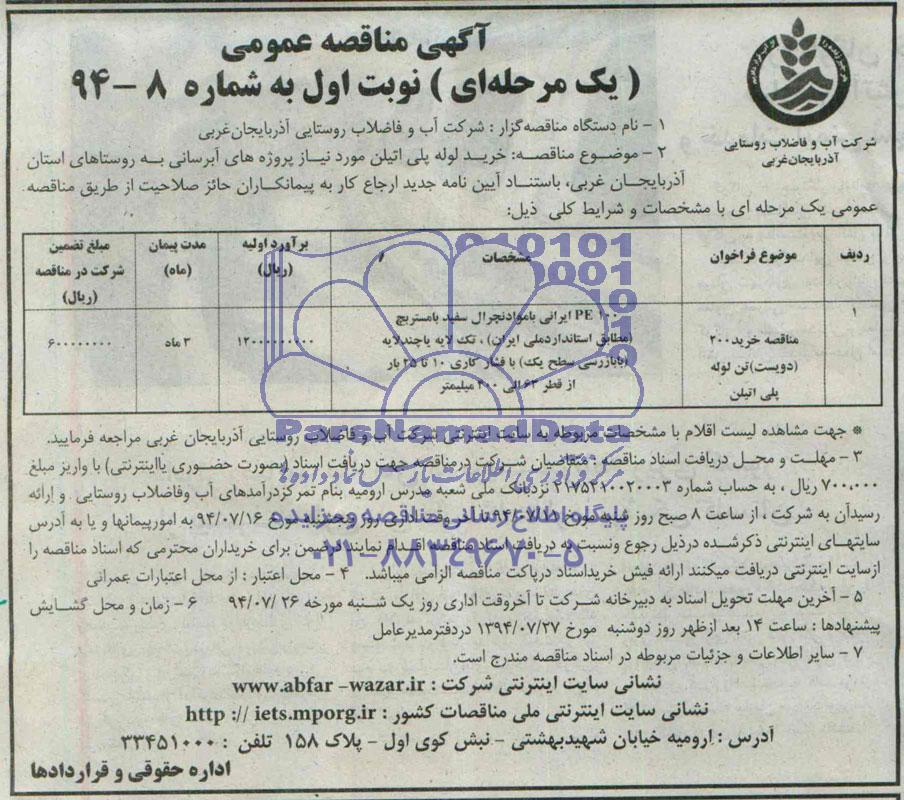 آگهی مناقصه عمومی
( یک مرحله‌ای ) نوبت اول به شماره ۸ - ۹۴
شرکت آب و فاضلاب روستایی
آذربایجان‌غربی
۱ - نام دستگاه مناقصه‌گزار : شرکت آب و فاضلاب روستایی آذربایجان‌غربی
۲ - موضوع مناقصه: خرید لوله پلی اتیلن مورد نیاز پروژه های آبرسانی به روستاهای استان
آذربایجان غربی، باستناد آیین نامه جدید ارجاع کار به پیمانکاران حائز صلاحیت از طریق مناقصه
عمومی یک مرحله ای با مشخصات و شرایط کلی ذیل:
ردیف موضوع فراخوان مشخصات برآورد اولیه (ریال) مدت پیمان (ماه) مبلغ تضمین شرکت در مناقصه (ریال)
۱
مناقصه خرید ۲۰۰
(دویست) تن لوله
پلی اتیلن
PE ۱۰۰ ایرانی باموادنچرال سفید بامستربچ
(مطابق استانداردملی ایران) ، تک لایه یاچندلایه
(بابازرسی سطح یک) با فشار کاری ۱۰ تا ۲۵ بار
از قطر ۶۳ الی ۴۰۰ میلیمتر
۱۲۰۰۰۰۰۰۰۰۰
۳ ماه
۶۰۰۰۰۰۰۰۰
* جهت مشاهده لیست اقلام با مشخصات مربوطه به سایت اینترنتی شرکت آب و فاضلاب روستایی آذربایجان غربی مراجعه فرمایید.
۳ - مهلت و محل دریافت اسناد مناقصه : متقاضیان شرکت درمناقصه جهت دریافت اسناد (بصورت حضوری یااینترنتی) با واریز مبلغ
۷۰۰،۰۰۰ ریال ، به حساب شماره ۲۱۷۵۲۱۰۰۲۰۰۰۳ نزدبانک ملی شعبه مدرس ارومیه بنام تمرکزدرآمدهای آب وفاضلاب روستایی و ارائه
رسیدآن به شرکت ، از ساعت ۸ صبح روز شنبه مورخ ۹۴/۰۷/۱۱ تا آخروقت اداری روز پنجشنبه مورخ ۹۴/۰۷/۱۶ به امورپیمانها و یا به آدرس
سایتهای اینترنتی ذکرشده درذیل رجوع ونسبت به دریافت اسناد مناقصه اقدام نمایند. درضمن برای خریداران محترمی که اسناد مناقصه را
ازسایت اینترنتی دریافت میکنند ارائه فیش خریداسناد درپاکت مناقصه الزامی میباشد. ۴ - محل اعتبار : از محل اعتبارات عمرانی
۵ - آخرین مهلت تحویل اسناد به دبیرخانه شرکت تا آخروقت اداری روز یک شنبه مورخه ۲۶ /۰۷/ ۹۴ ۶ - زمان و محل گشایش
پیشنهادها : ساعت ۱۴ بعد ازظهر روز دوشنبه مورخ ۱۳۹۴/۰۷/۲۷ دردفترمدیرعامل
۷ - سایر اطلاعات و جزئیات مربوطه در اسناد مناقصه مندرج است.
نشانی سایت اینترنتی شرکت : www.abfar -wazar.ir
نشانی سایت اینترنتی ملی مناقصات کشور : http :// iets.mporg.ir
آدرس : ارومیه خیابان شهیدبهشتی - نبش کوی اول - پلاک ۱۵۸ تلفن : ۳۳۴۵۱۰۰۰
اداره حقوقی و قراردادها
ParsNamadData
مرکز فن آوری اطلاعات پارس نماد داده ها
پایگاه اطلاع رسانی مناقصه و مزایده
۰۲۱-۸۸۳۴۹۶۷۰-۵